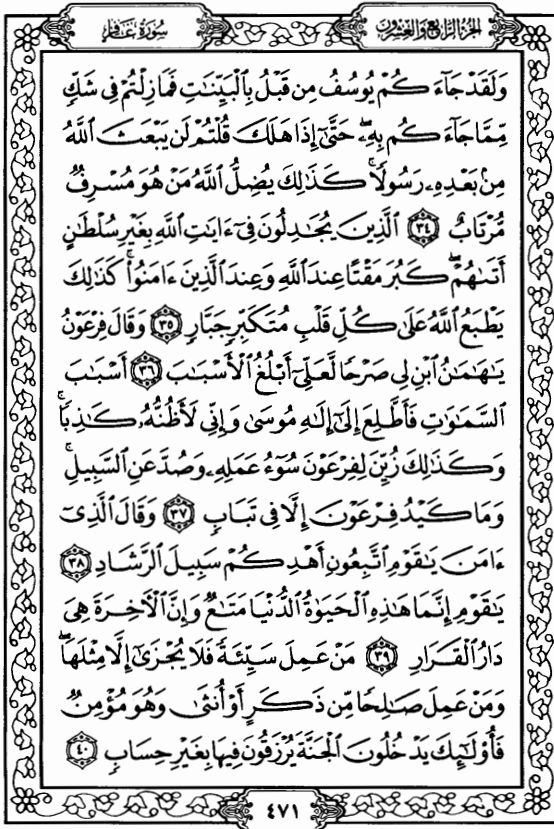 سُورَةُ غَافِر
الجُزْءُ الرَّابِعُ وَالعِشْرُونَ
وَلَقَدْ جَآءَكُمْ يُوسُفُ مِن قَبْلُ بِٱلْبَيِّنَٰتِ فَمَازِلْتُمْ فِى شَكٍّ
مِّمَّا جَآءَكُم بِهِۦۖ حَتَّىٰٓ إِذَا هَلَكَ قُلْتُمْ لَن يَبْعَثَ ٱللَّهُ
مِنۢ بَعْدِهِۦ رَسُولًاۚ كَذَٰلِكَ يُضِلُّ ٱللَّهُ مَنْ هُوَ مُسْرِفٌ
مُّرْتَابٌ ٣٤ ٱلَّذِينَ يُجَٰدِلُونَ فِىٓ ءَايَٰتِ ٱللَّهِ بِغَيْرِ سُلْطَٰنٍ
أَتَىٰهُمْۖ كَبُرَ مَقْتًا عِندَ ٱللَّهِ وَعِندَ ٱلَّذِينَ ءَامَنُوا۟ۚ كَذَٰلِكَ
يَطْبَعُ ٱللَّهُ عَلَىٰ كُلِّ قَلْبِ مُتَكَبِّرٍ جَبَّارٍ ٣٥ وَقَالَ فِرْعَوْنُ
يَٰهَٰمَٰنُ ٱبْنِ لِى صَرْحًا لَّعَلِّىٓ أَبْلُغُ ٱلْأَسْبَٰبَ ٣٦ أَسْبَٰبَ
ٱلسَّمَٰوَٰتِ فَأَطَّلِعَ إِلَىٰٓ إِلَٰهِ مُوسَىٰ وَإِنِّى لَأَظُنُّهُۥ كَٰذِبًاۚ
وَكَذَٰلِكَ زُيِّنَ لِفِرْعَوْنَ سُوٓءُ عَمَلِهِۦ وَصُدَّ عَنِ ٱلسَّبِيلِۚ
وَمَا كَيْدُ فِرْعَوْنَ إِلَّا فِى تَبَابٍ ٣٧ وَقَالَ ٱلَّذِىٓ
ءَامَنَ يَٰقَوْمِ ٱتَّبِعُونِ أَهْدِكُمْ سَبِيلَ ٱلرَّشَادِ ٣٨
يَٰقَوْمِ إِنَّمَا هَٰذِهِ ٱلْحَيَوٰةُ ٱلدُّنْيَا مَتَٰعٌ وَإِنَّ ٱلْءَاخِرَةَ هِىَ
دَارُ ٱلْقَرَارِ ٣٩ مَنْ عَمِلَ سَيِّئَةً فَلَا يُجْزَىٰٓ إِلَّا مِثْلَهَاۖ
وَمَنْ عَمِلَ صَٰلِحًا مِّن ذَكَرٍ أَوْ أُنثَىٰ وَهُوَ مُؤْمِنٌ
فَأُو۟لَٰٓئِكَ يَدْخُلُونَ ٱلْجَنَّةَ يُرْزَقُونَ فِيهَا بِغَيْرِ حِسَابٍ ٤٠
٤٧١